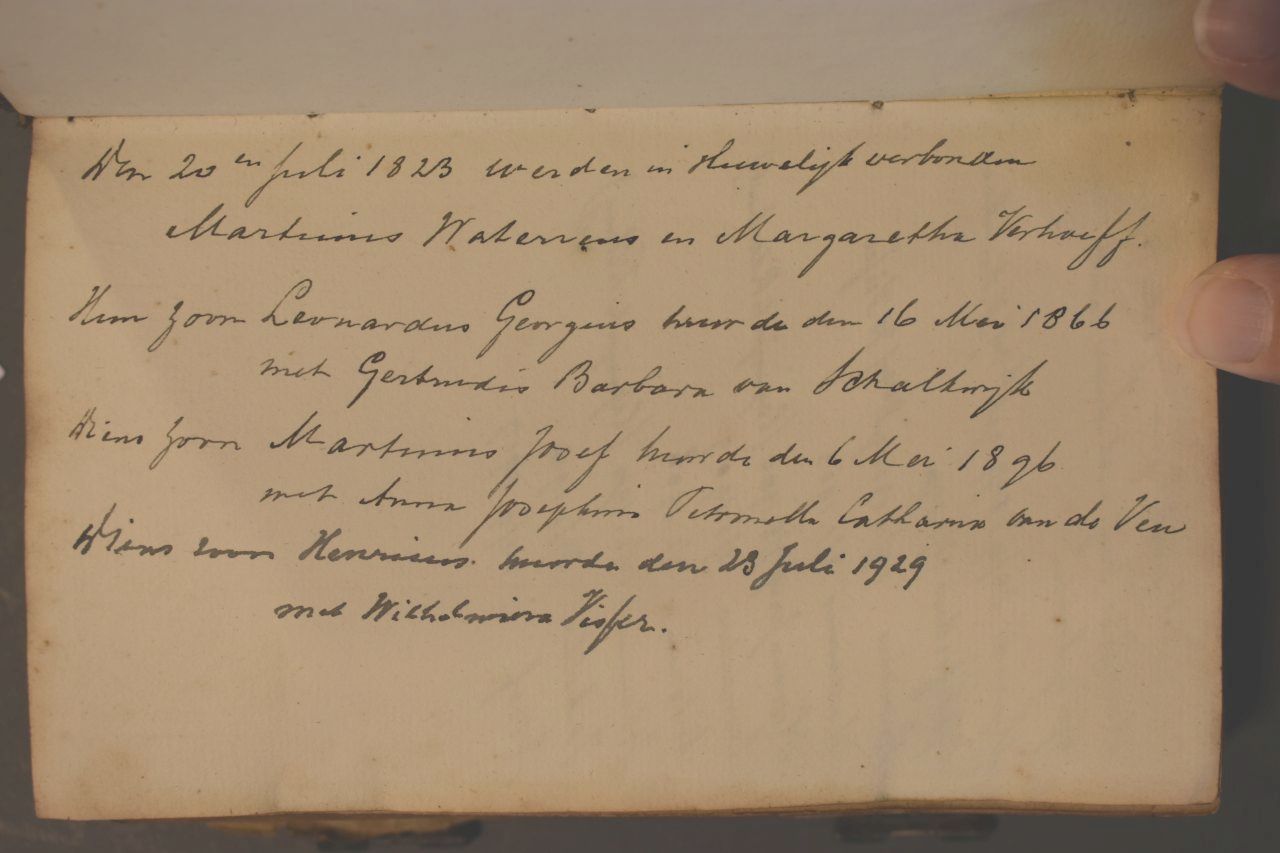 Den 20en Juli 1823 werden in Huwelijk verbonden
Martinus Waterreus en Margaretha Verhoeff.
Hun zoon Leonardus Georgius huurde den 16 Mei 1866
met Gertrudis Barbara van Schalkwijk
Diens zoon Martinus Josef huurde den 6 Mei 1896
met Anna Josephina Petronella Catharina van de Ven
Diens zoon Henricus huurde den 23 Juli 1929
met Wilhelmina Visser.